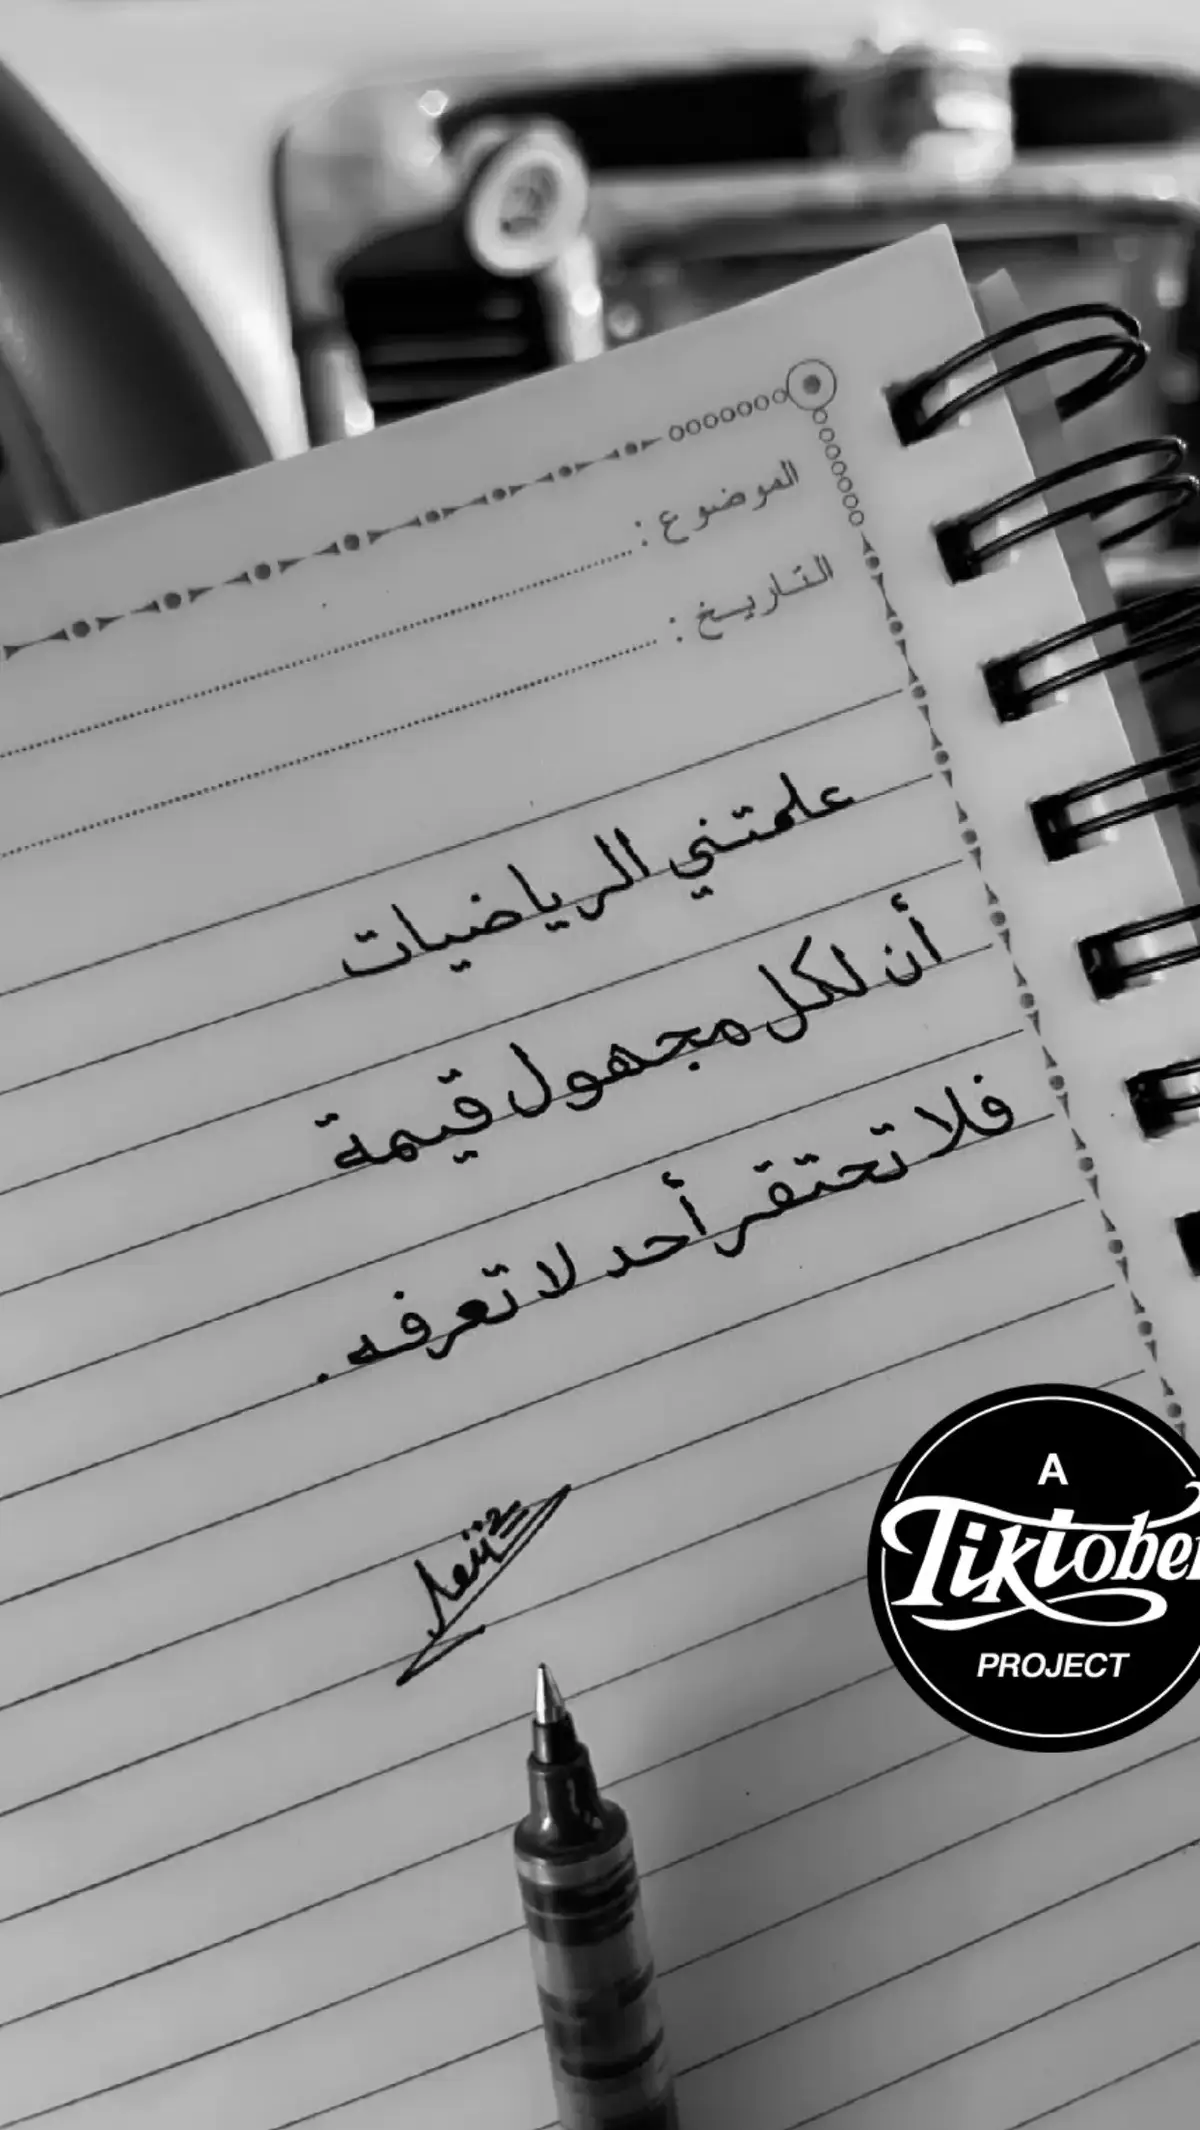 الموضوع :
التاريخ :
علمتني الرياضيات
أن لكل مجهول قيمة
فلا تحتقر أحد لا تعرفه .
A
Tiktober
PROJECT